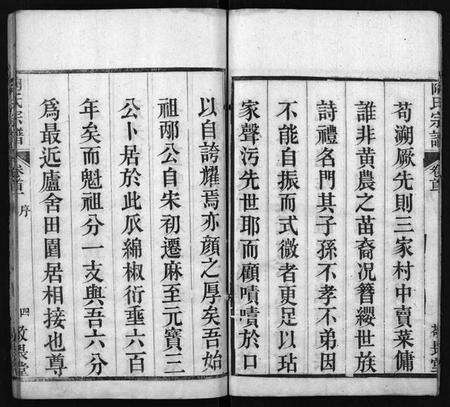 苟溯厥先則三家村中賣菜傭
誰非黄農之苗裔况簪纓世族
詩禮名門其子孫不孝不弟因
不能自振而式微者更足以玷
家聲污先世耶而顧嘖嘖於口
以自誇耀焉亦顔之厚矣吾始
祖邴公自宋初遷麻至元寶三
公卜居於此瓜綿椒衍垂六百
年矣而魁祖分一支與吾六分
為最近廬舍田園居相接也尊
氏宗譜
卷首
序
四